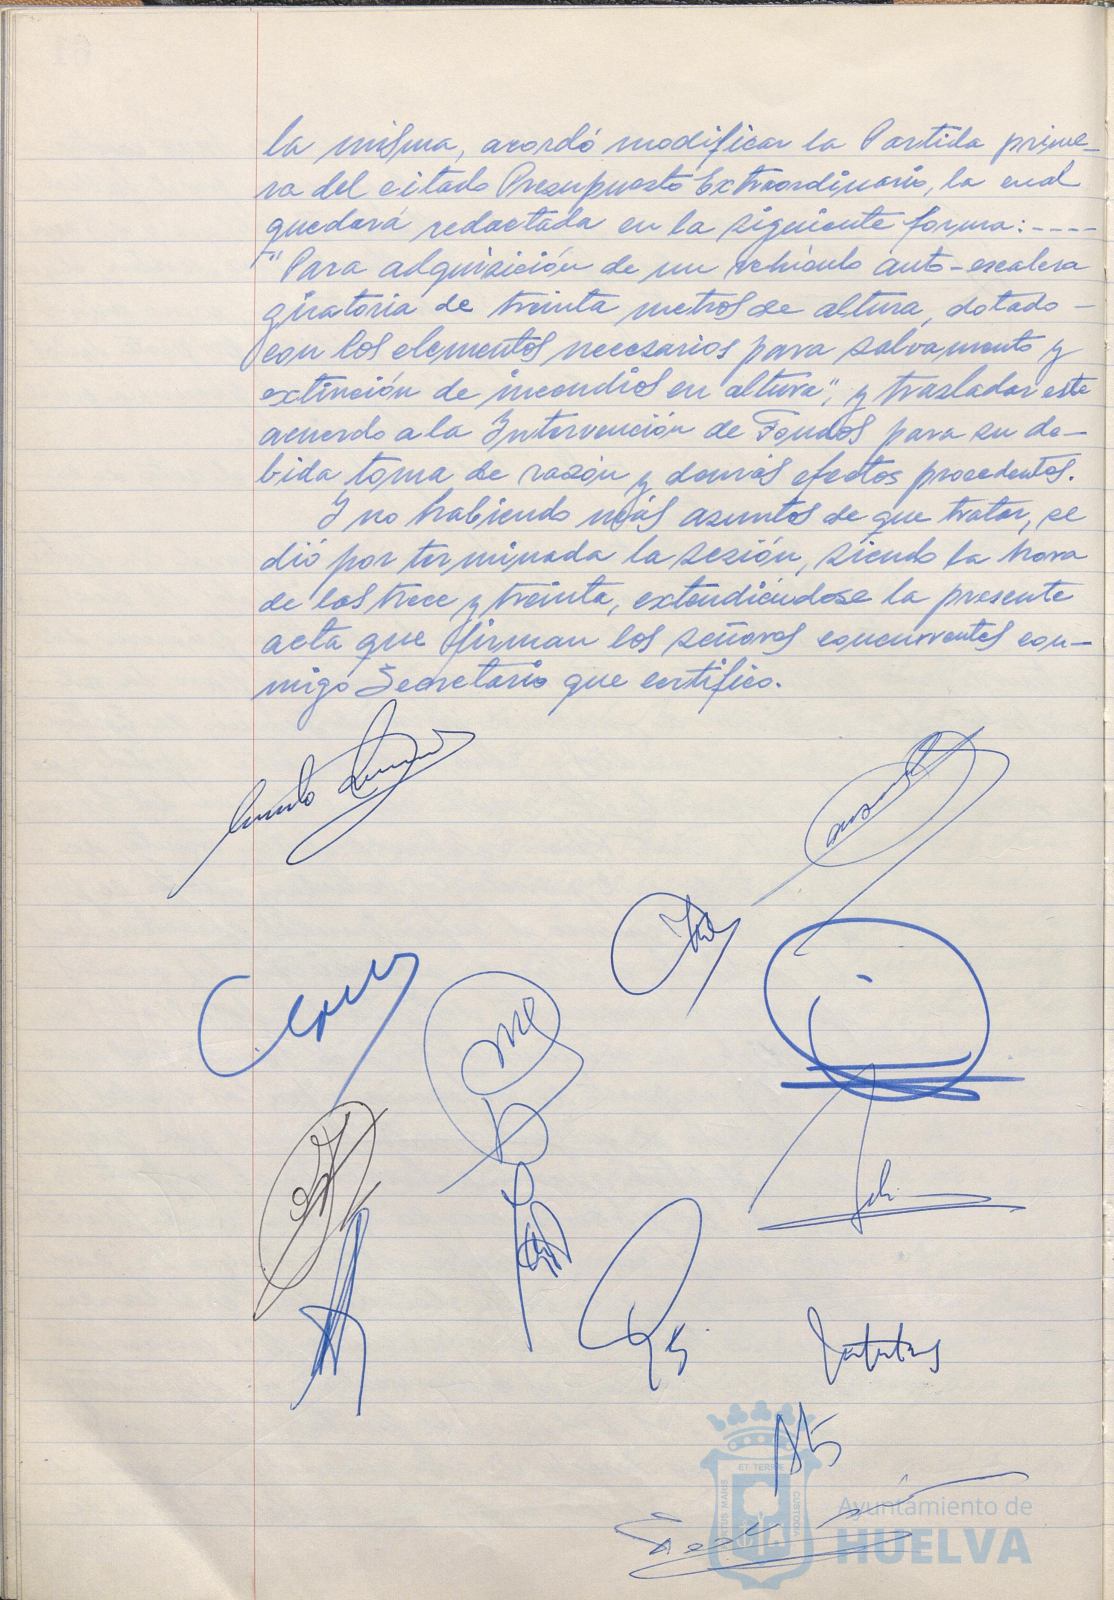 la misma, acordó modificar la Partida prime-
ra del citado Presupuesto Extraordinario, la cual
quedará redactada en la siguiente forma: ----
"Para adquisición de un vehículo auto-escalera
giratoria de treinta metros de altura, dotado -
con los elementos necesarios para salvamento y
extinción de incendios en altura", y trasladar este
acuerdo a la Intervención de Fondos para su de-
bida toma de razón y demás efectos procedentes.
Y no habiendo más asuntos de que tratar, se
dió por terminada la sesión, siendo la hora
de las trece y treinta, extendiéndose la presente
acta que firman los señores concurrentes con-
migo Secretario que certifico.
ET TERRE
PORTUS MARIS
CUSTODIA
Ayuntamiento de
HUELVA